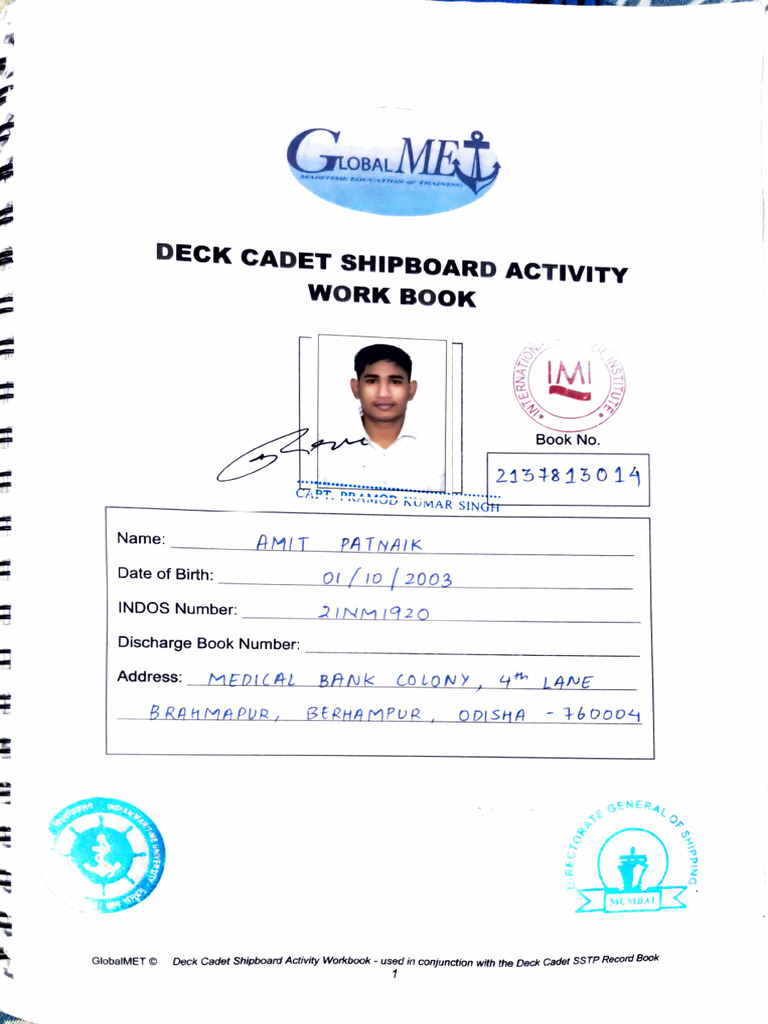 GLOBALMET
MARITIME EDUCATION & TRAINING
DECK CADET SHIPBOARD ACTIVITY
WORK BOOK
INTERNATIONAL INSTITUTE
IMI
Book No.
2137813014
CAPT. PRAMOD KUMAR SINGH
Name: AMIT PATNAIK
Date of Birth: 01/10/2003
INDOS Number: 21NM1920
Discharge Book Number:
Address: MEDICAL BANK COLONY, 4th LANE
BRAHMAPUR, BERHAMPUR, ODISHA - 760004
INDIAN MARITIME UNIVERSITY
DIRECTORATE GENERAL OF SHIPPING
MUMBAI
GlobalMET © Deck Cadet Shipboard Activity Workbook - used in conjunction with the Deck Cadet SSTP Record Book
1